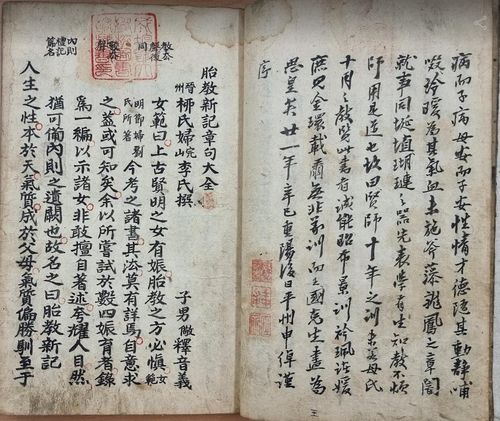 病而子病母安而子安性情才德隨其動靜哺
啜冷暖為其氣血未施斧藻龍鳳之章闇
就事同埏埴瑚璉之器先表學有生知教不煩
師用是道也故曰賢師十年之訓未若母氏
十月之教覽此書者誠能昭布景訓衿珮諸媛
庶見金環載肅無非訓而之國生盡為
思皇矣卄一年辛巳重陽後日平州申綽謹
序
三
教去聲後同
胎教新記章句大全
晉州柳氏婦完山李氏撰
子男儆釋音義
女範曰上古賢明之女有娠胎教之方必慎女範
明節婦劉氏所著今考之諸書其法莫有詳焉自意求
之蓋或可知矣余以所嘗試於數四娠育者錄
為一編以示諸女非敢擅自著述夸耀人目然
內則禮記篇名
猶可備內則之遺闕也故名之曰胎教新記
人生之性本於天氣質成於父母氣質偏勝馴至于